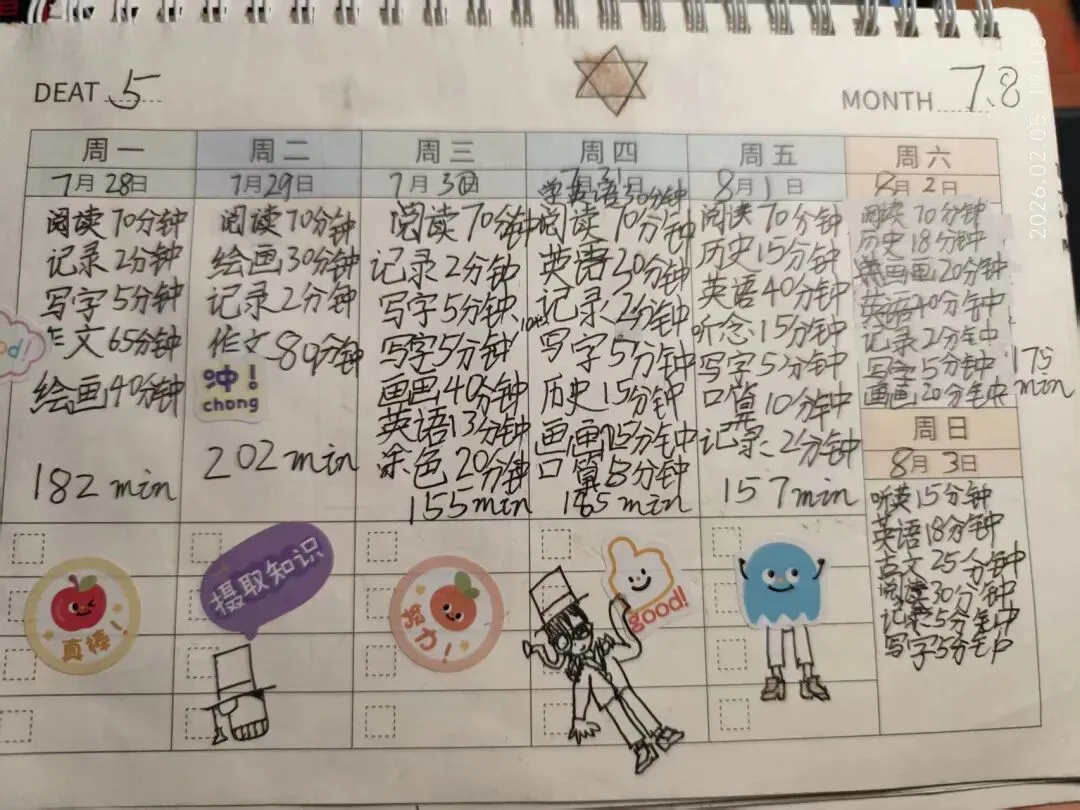 DEAT 5
MONTH 7.8
周一
7月28日
阅读70分钟
记录2分钟
写字5分钟
作文65分钟
绘画40分钟
182min
真棒!
周二
7月29日
阅读70分钟
绘画30分钟
记录2分钟
作文80分钟
冲!
chong
202min
摄取知识
周三
7月30日
阅读70分钟
记录2分钟
写字5分钟
写字5分钟
画画40分钟
英语13分钟
涂色20分钟
155min
努力!
周四
7月31日
学英语30分钟
阅读70分钟
英语30分钟
记录2分钟
写字5分钟
历史15分钟
画画15分钟
口算8分钟
good!
周五
8月1日
阅读70分钟
历史15分钟
英语40分钟
听念15分钟
写字5分钟
口算10分钟
记录2分钟
157min
周六
8月2日
阅读70分钟
历史18分钟
画画20分钟
英语40分钟
记录2分钟
写字5分钟
画画20分钟
175
min
周日
8月3日
听英15分钟
英语18分钟
古文25分钟
阅读30分钟
记录5分钟
写字5分钟
2026.02.05